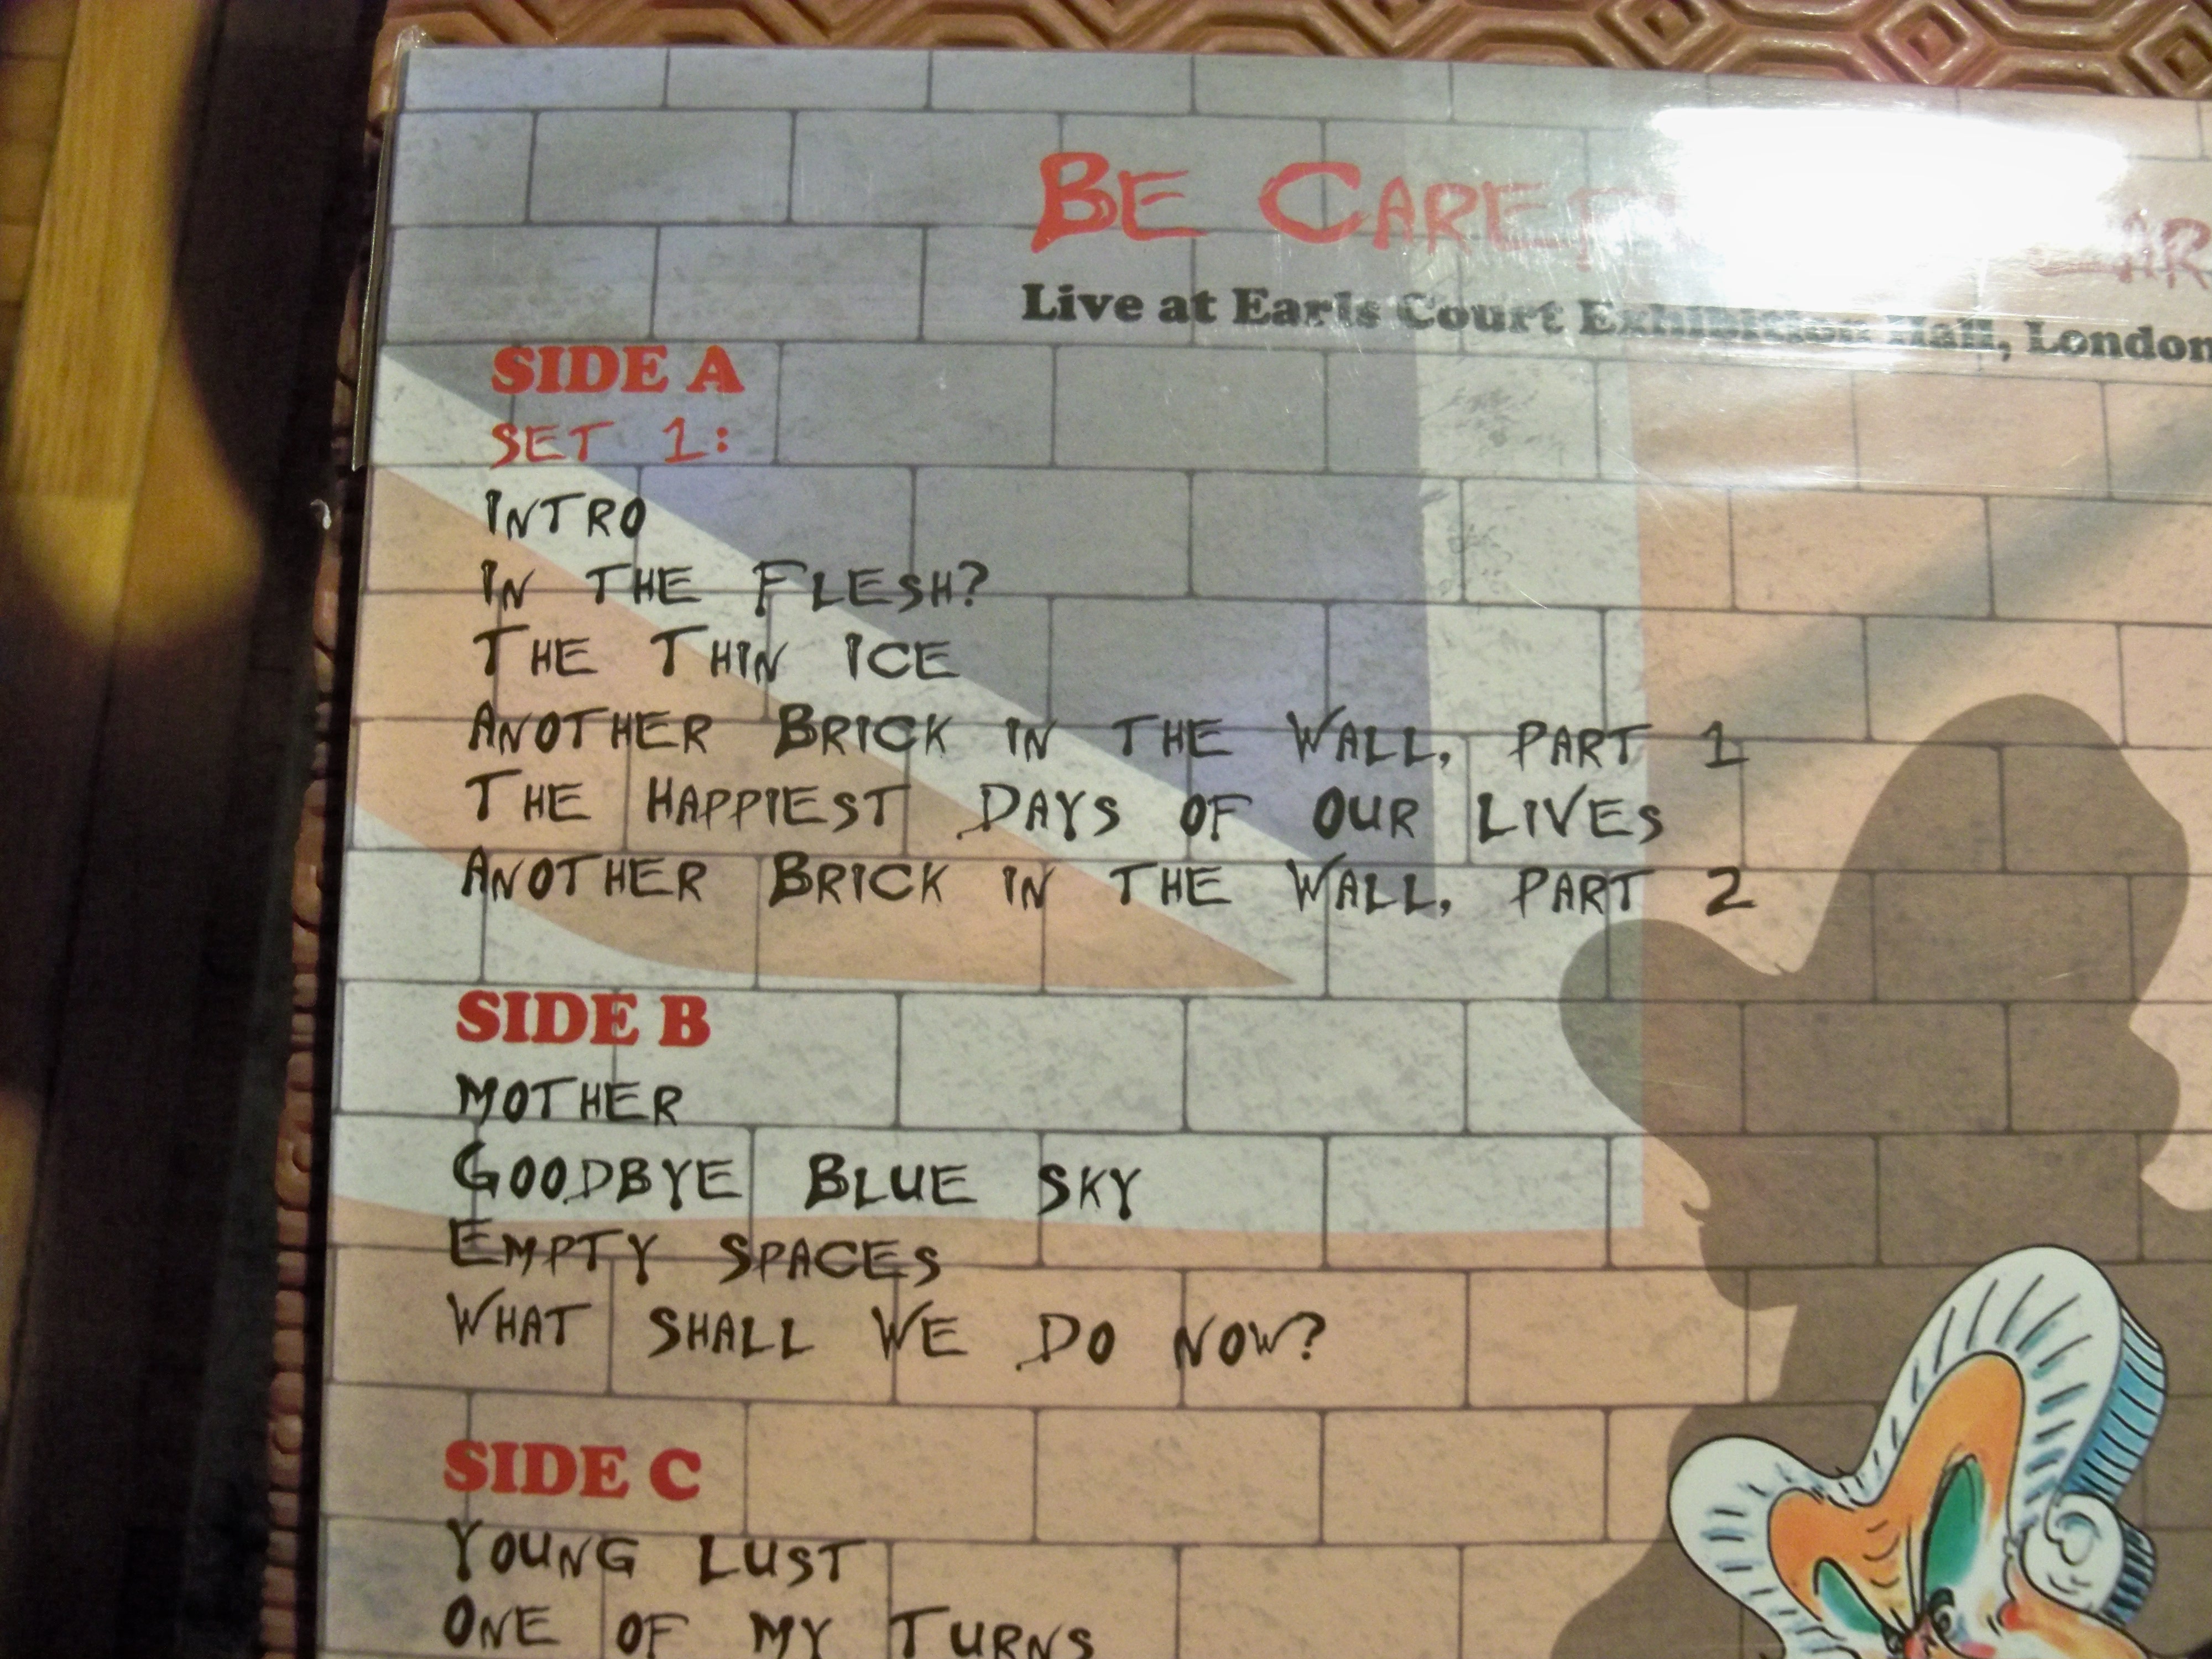 BE CARE
Live at Earls Court Exhibition Hall, London
SIDE A
SET 1:
INTRO
IN THE FLESH?
THE THIN ICE
ANOTHER BRICK IN THE WALL, PART 1
THE HAPPIEST DAYS OF OUR LIVES
ANOTHER BRICK IN THE WALL, PART 2
SIDE B
MOTHER
GOODBYE BLUE SKY
EMPTY SPACES
WHAT SHALL WE DO NOW?
SIDE C
YOUNG LUST
ONE OF MY TURNS